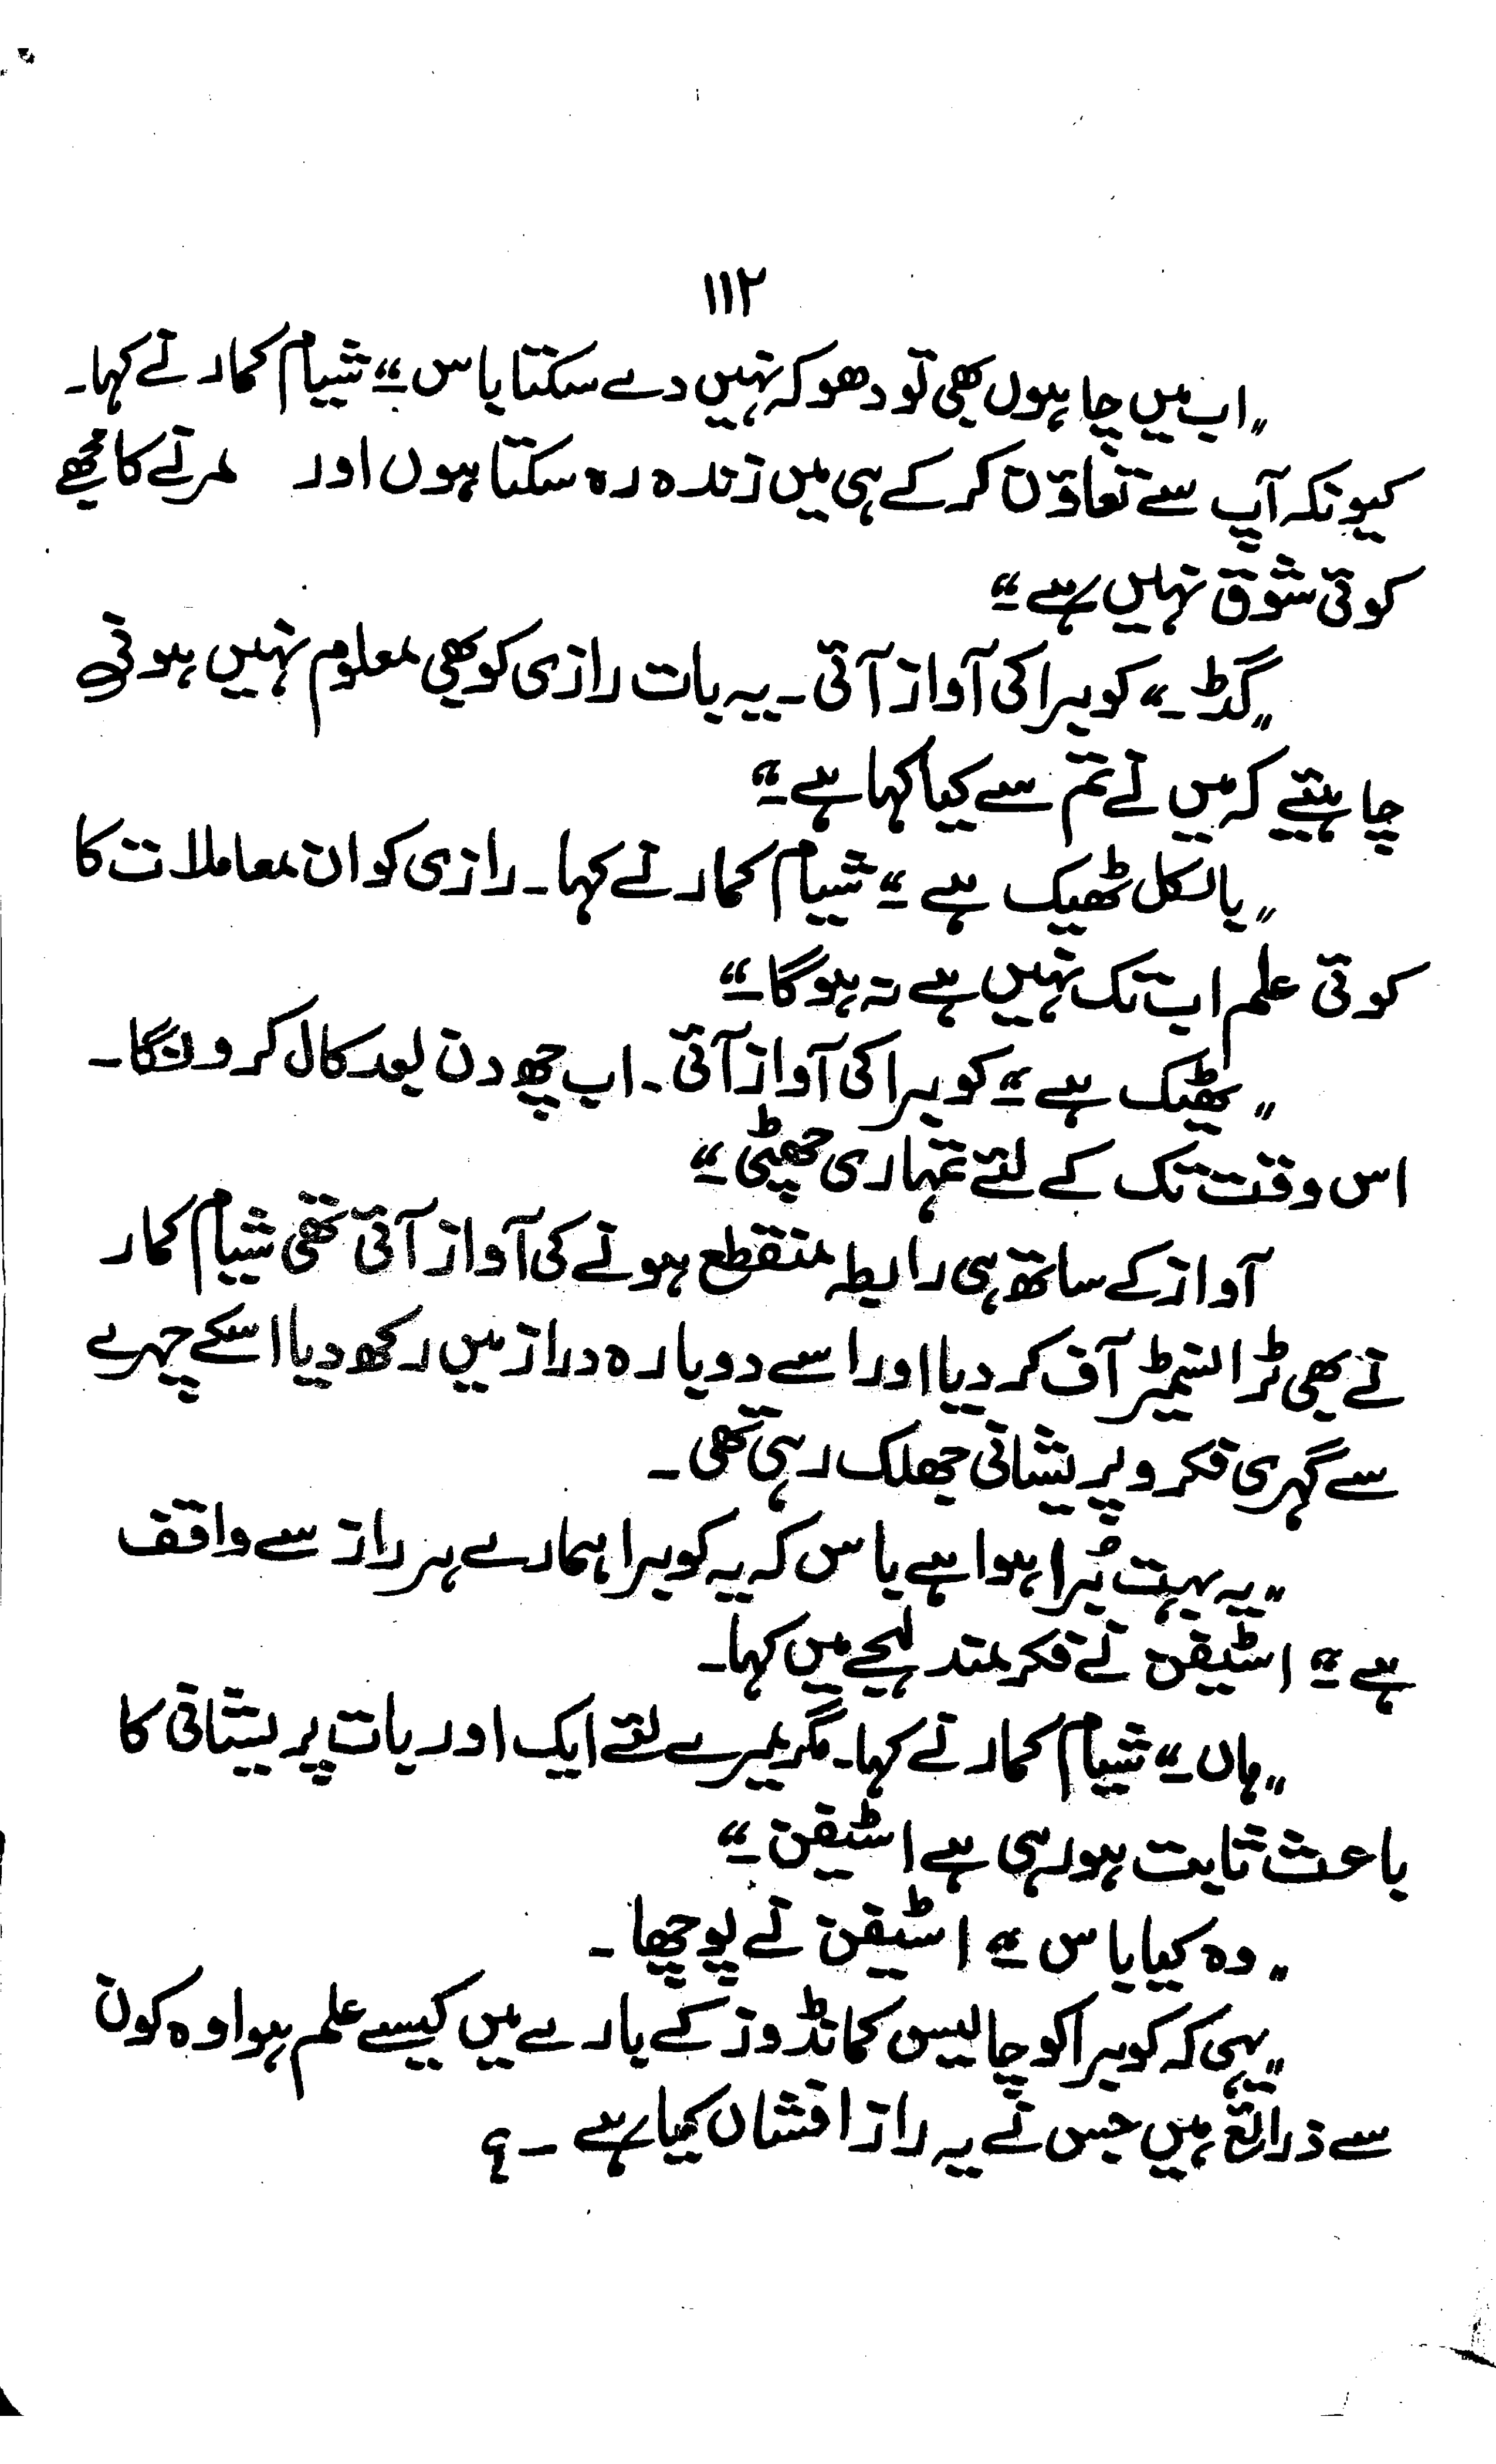 ۱۱۲
"اب میں چاہوں بھی تو دھوکہ نہیں دے سکتا باس۔" شیام کمار نے کہا۔
کیونکہ آپ سے تعاون کر کے ہی میں زندہ رہ سکتا ہوں اور مرنے کا مجھے
کوئی شوق نہیں ہے۔"
"گڈ۔" کوبرا کی آواز آئی۔ یہ بات رازی کو بھی معلوم نہیں ہونی
چاہیئے کہ میں نے تم سے کیا کہا ہے۔"
"بالکل ٹھیک ہے۔" شیام کمار نے کہا۔ رازی کو ان معاملات کا
کوئی علم اب تک نہیں ہے نہ ہوگا۔"
"ٹھیک ہے۔" کوبرا کی آواز آئی۔ اب چھ دن بعد کال کرونگا۔
اس وقت تک کے لئے تمہاری چھٹی۔"
آواز کے ساتھ ہی رابطہ منقطع ہونے کی آواز آئی تھی شیام کمار
نے بھی ٹرانسمیٹر آف کر دیا اور اسے دوبارہ دراز میں رکھ دیا اسکے چہرے
سے گہری فکر و پریشانی جھلک رہی تھی۔
"یہ بہت بُرا ہوا ہے باس کہ یہ کوبرا ہمارے ہر راز سے واقف
ہے۔" اسٹیفن نے فکر مند لہجے میں کہا۔
"ہاں۔" شیام کمار نے کہا۔ مگر میرے لئے ایک اور بات پریشانی کا
باعث ثابت ہو رہی ہے اسٹیفن۔"
"وہ کیا باس۔" اسٹیفن نے پوچھا۔
"یہی کہ کوبرا کو چالیس کمانڈوز کے بارے میں کیسے علم ہوا وہ کون
سے ذرائع ہیں جس نے یہ راز افشاں کیا ہے۔؟